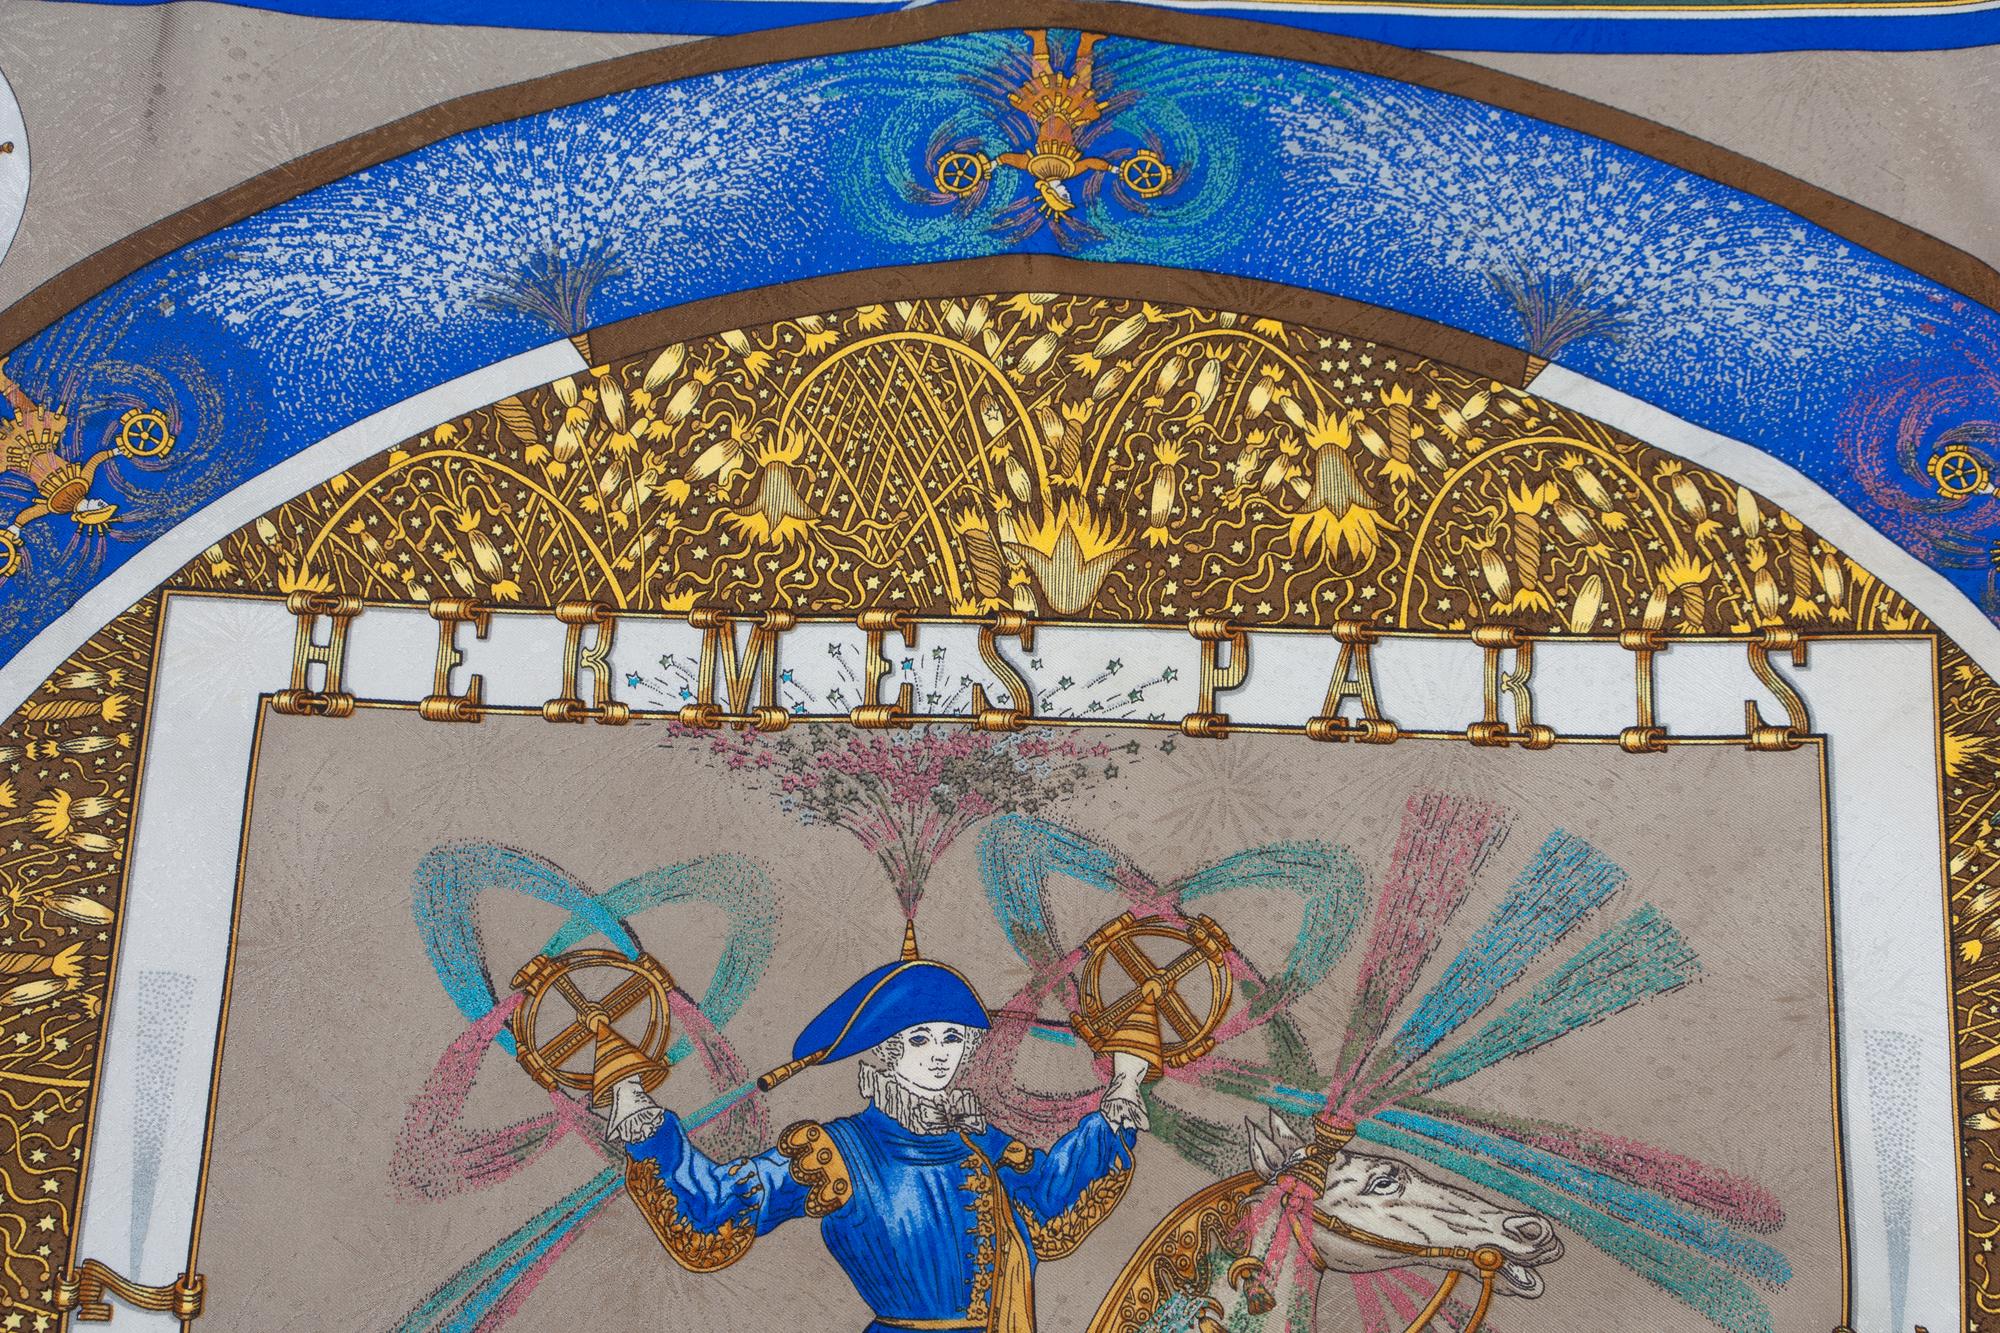 HERMES PARIS